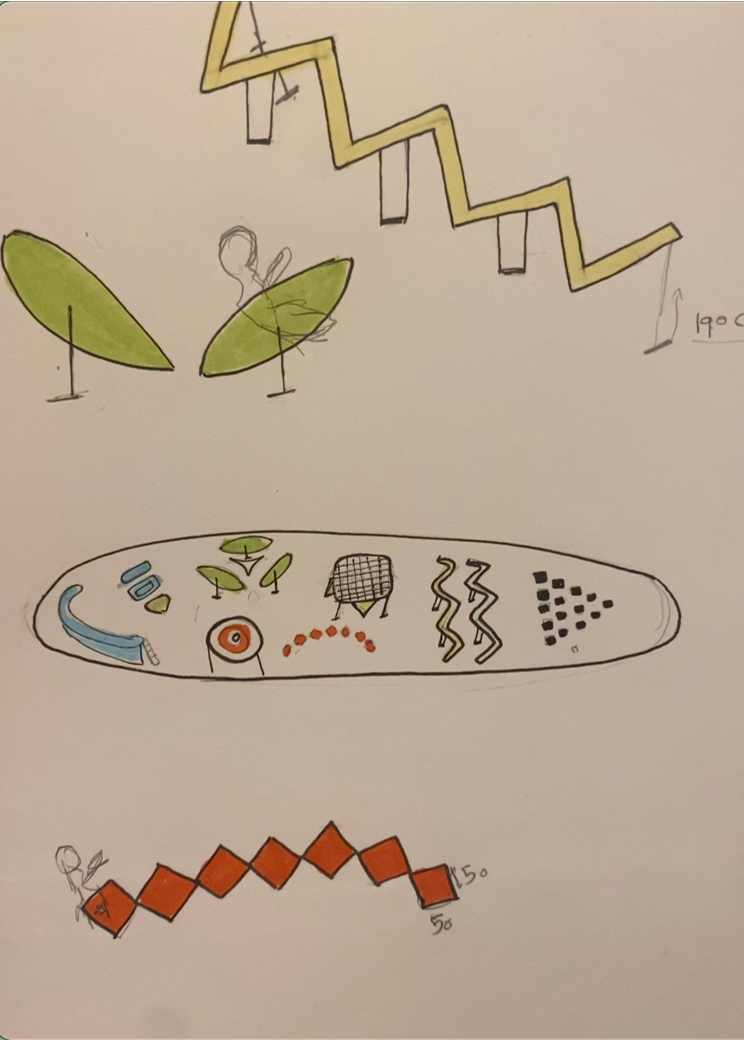 190 C
50
50